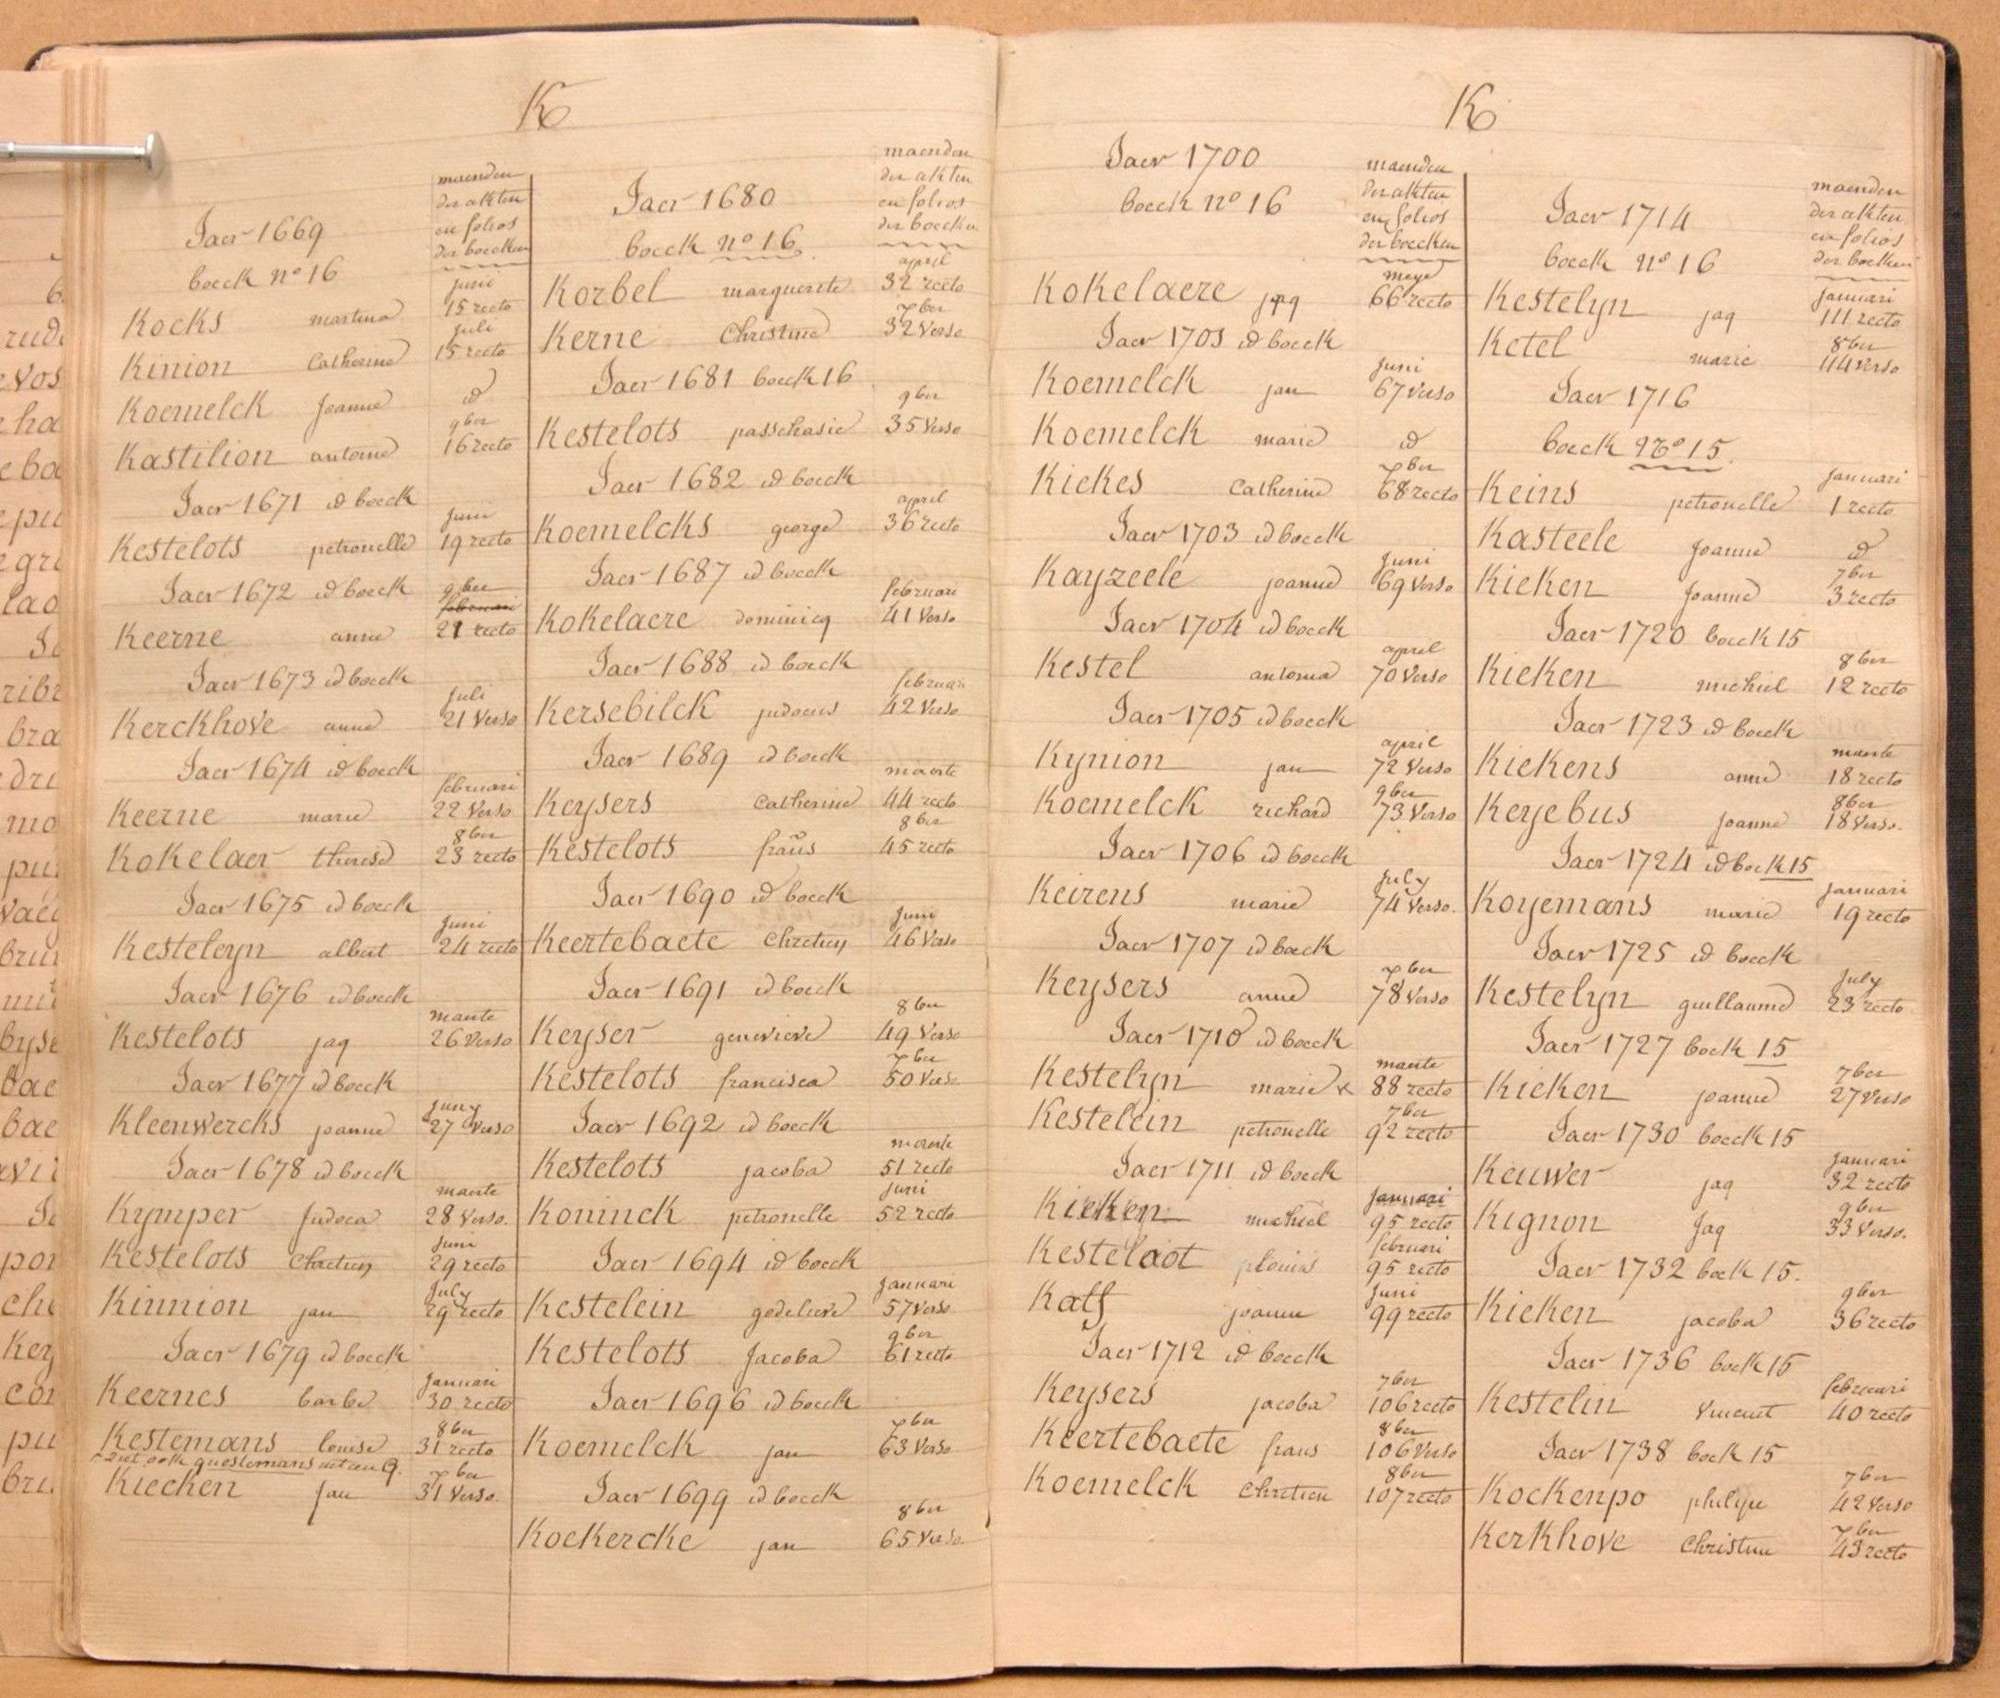 K
maenden
der akten
en folios
der boecken
Jaer 1669
boeck no 16
juni
Kocks martina 15 recto
juli
Kinion Catherine 15 recto
Koemelck Joanne id
9ber
Kastilion antoine 16 recto
Jaer 1671 id boeck
juni
Kestelots petronelle 19 recto
Jaer 1672 id boeck
9ber
februari
Keerne anne 21 recto
Jaer 1673 id boeck
juli
Kerckhove anne 21 verso
Jaer 1674 id boeck
februari
Keerne marie 22 verso
8ber
Kokelaer therese 23 recto
Jaer 1675 id boeck
juni
Kesteleyn albert 24 recto
Jaer 1676 id boeck
maerte
Kestelots jaq 26 verso
Jaer 1677 id boeck
juny
Kleenwercks joanne 27 verso
Jaer 1678 id boeck
maerte
Kymper Judoca 28 verso.
juni
Kestelots Chretien 29 recto
july
Kinnion jan 29 recto
Jaer 1679 id boeck
januari
Keernes barbe 30 recto
8ber
Kestemans louise 31 recto
ziet ook questemans met een Q.
7ber
Kiecken jan 31 verso.
maenden
der akten
en folios
der boecken
Jaer 1680
boeck no 16.
april
Korbel marguerite 32 recto
7ber
Kerne Christine 32 verso
Jaer 1681 boeck 16
9ber
Kestelots passchasie 35 verso
Jaer 1682 id boeck
april
Koemelcks george 36 recto
Jaer 1687 id boeck
februari
Kokelaere dominicq 41 verso
Jaer 1688 id boeck
februari
Kersebilck judocus 42 verso
Jaer 1689 id boeck
maerte
Keysers Catherine 44 recto
8ber
Kestelots frans 45 recto
Jaer 1690 id boeck
juni
Keertebaete Chretien 46 verso
Jaer 1691 id boeck
8ber
Keyser genevieve 49 verso
7ber
Kestelots francisca 50 verso
Jaer 1692 id boeck
maerte
Kestelots jacoba 51 recto
juni
Koninck petronelle 52 recto
Jaer 1694 id boeck
januari
Kestelein godelieve 57 verso
9ber
Kestelots Jacoba 61 recto
Jaer 1696 id boeck
7ber
Koemelck jan 63 verso
Jaer 1699 id boeck
8ber
Koekercke jan 65 verso.
K
Jaer 1700
boeck no 16
maenden
der akten
en folios
der boecken
meye
Kokelaere jaq 66 recto
Jaer 1701 id boeck
juni
Koemelck jan 67 verso
Koemelck marie id
7ber
Kiekes Catherine 68 recto
Jaer 1703 id boeck
juni
Kayzeele joanne 69 verso
Jaer 1704 id boeck
april
Kestel antonia 70 verso
Jaer 1705 id boeck
april
Kynion jan 72 verso
9ber
Koemelck richard 73 verso
Jaer 1706 id boeck
july
Keirens marie 74 verso.
Jaer 1707 id boeck
7ber
Keysers anne 78 verso
Jaer 1710 id boeck
maerte
Kestelyn marie x 88 recto
7ber
Kestelein petronelle 92 recto
Jaer 1711 id boeck
januari
Kieken michiel 95 recto
februari
Kestelaot 95 recto
juni
joanne 99 recto
Jaer 1712 id boeck
7ber
Keysers jacoba 106 recto
8ber
Keertebaete frans 106 verso
8ber
Koemelck Chretien 107 recto
maenden
der akten
en folios
der boecken
Jaer 1714
boeck no 16
januari
Kestelyn jaq 111 recto
8ber
Ketel marie 114 verso
Jaer 1716
boeck No 15.
januari
Keins petronelle 1 recto
Kasteele Joanne id
7ber
Kieken Joanne 3 recto
Jaer 1720 boeck 15
8ber
Kieken michiel 12 recto
Jaer 1723 id boeck
maerte
Kiekens anne 18 recto
8ber
Keyebus joanne 18 verso.
Jaer 1724 id boek 15
januari
Koyemans marie 19 recto
Jaer 1725 id boeck
july
Kestelyn guillaume 23 recto
Jaer 1727 boek 15
7ber
Kieken joanne 27 verso
Jaer 1730 boeck 15
januari
Keuwer jaq 32 recto
9ber
Kignon Jaq 33 verso.
Jaer 1732 boek 15.
9ber
Kieken jacoba 36 recto
Jaer 1736 boek 15
februari
Kestelin vincent 40 recto
Jaer 1738 boek 15
7ber
Kockenpo philipe 42 verso
7ber
Kerkhove Christine 43 recto